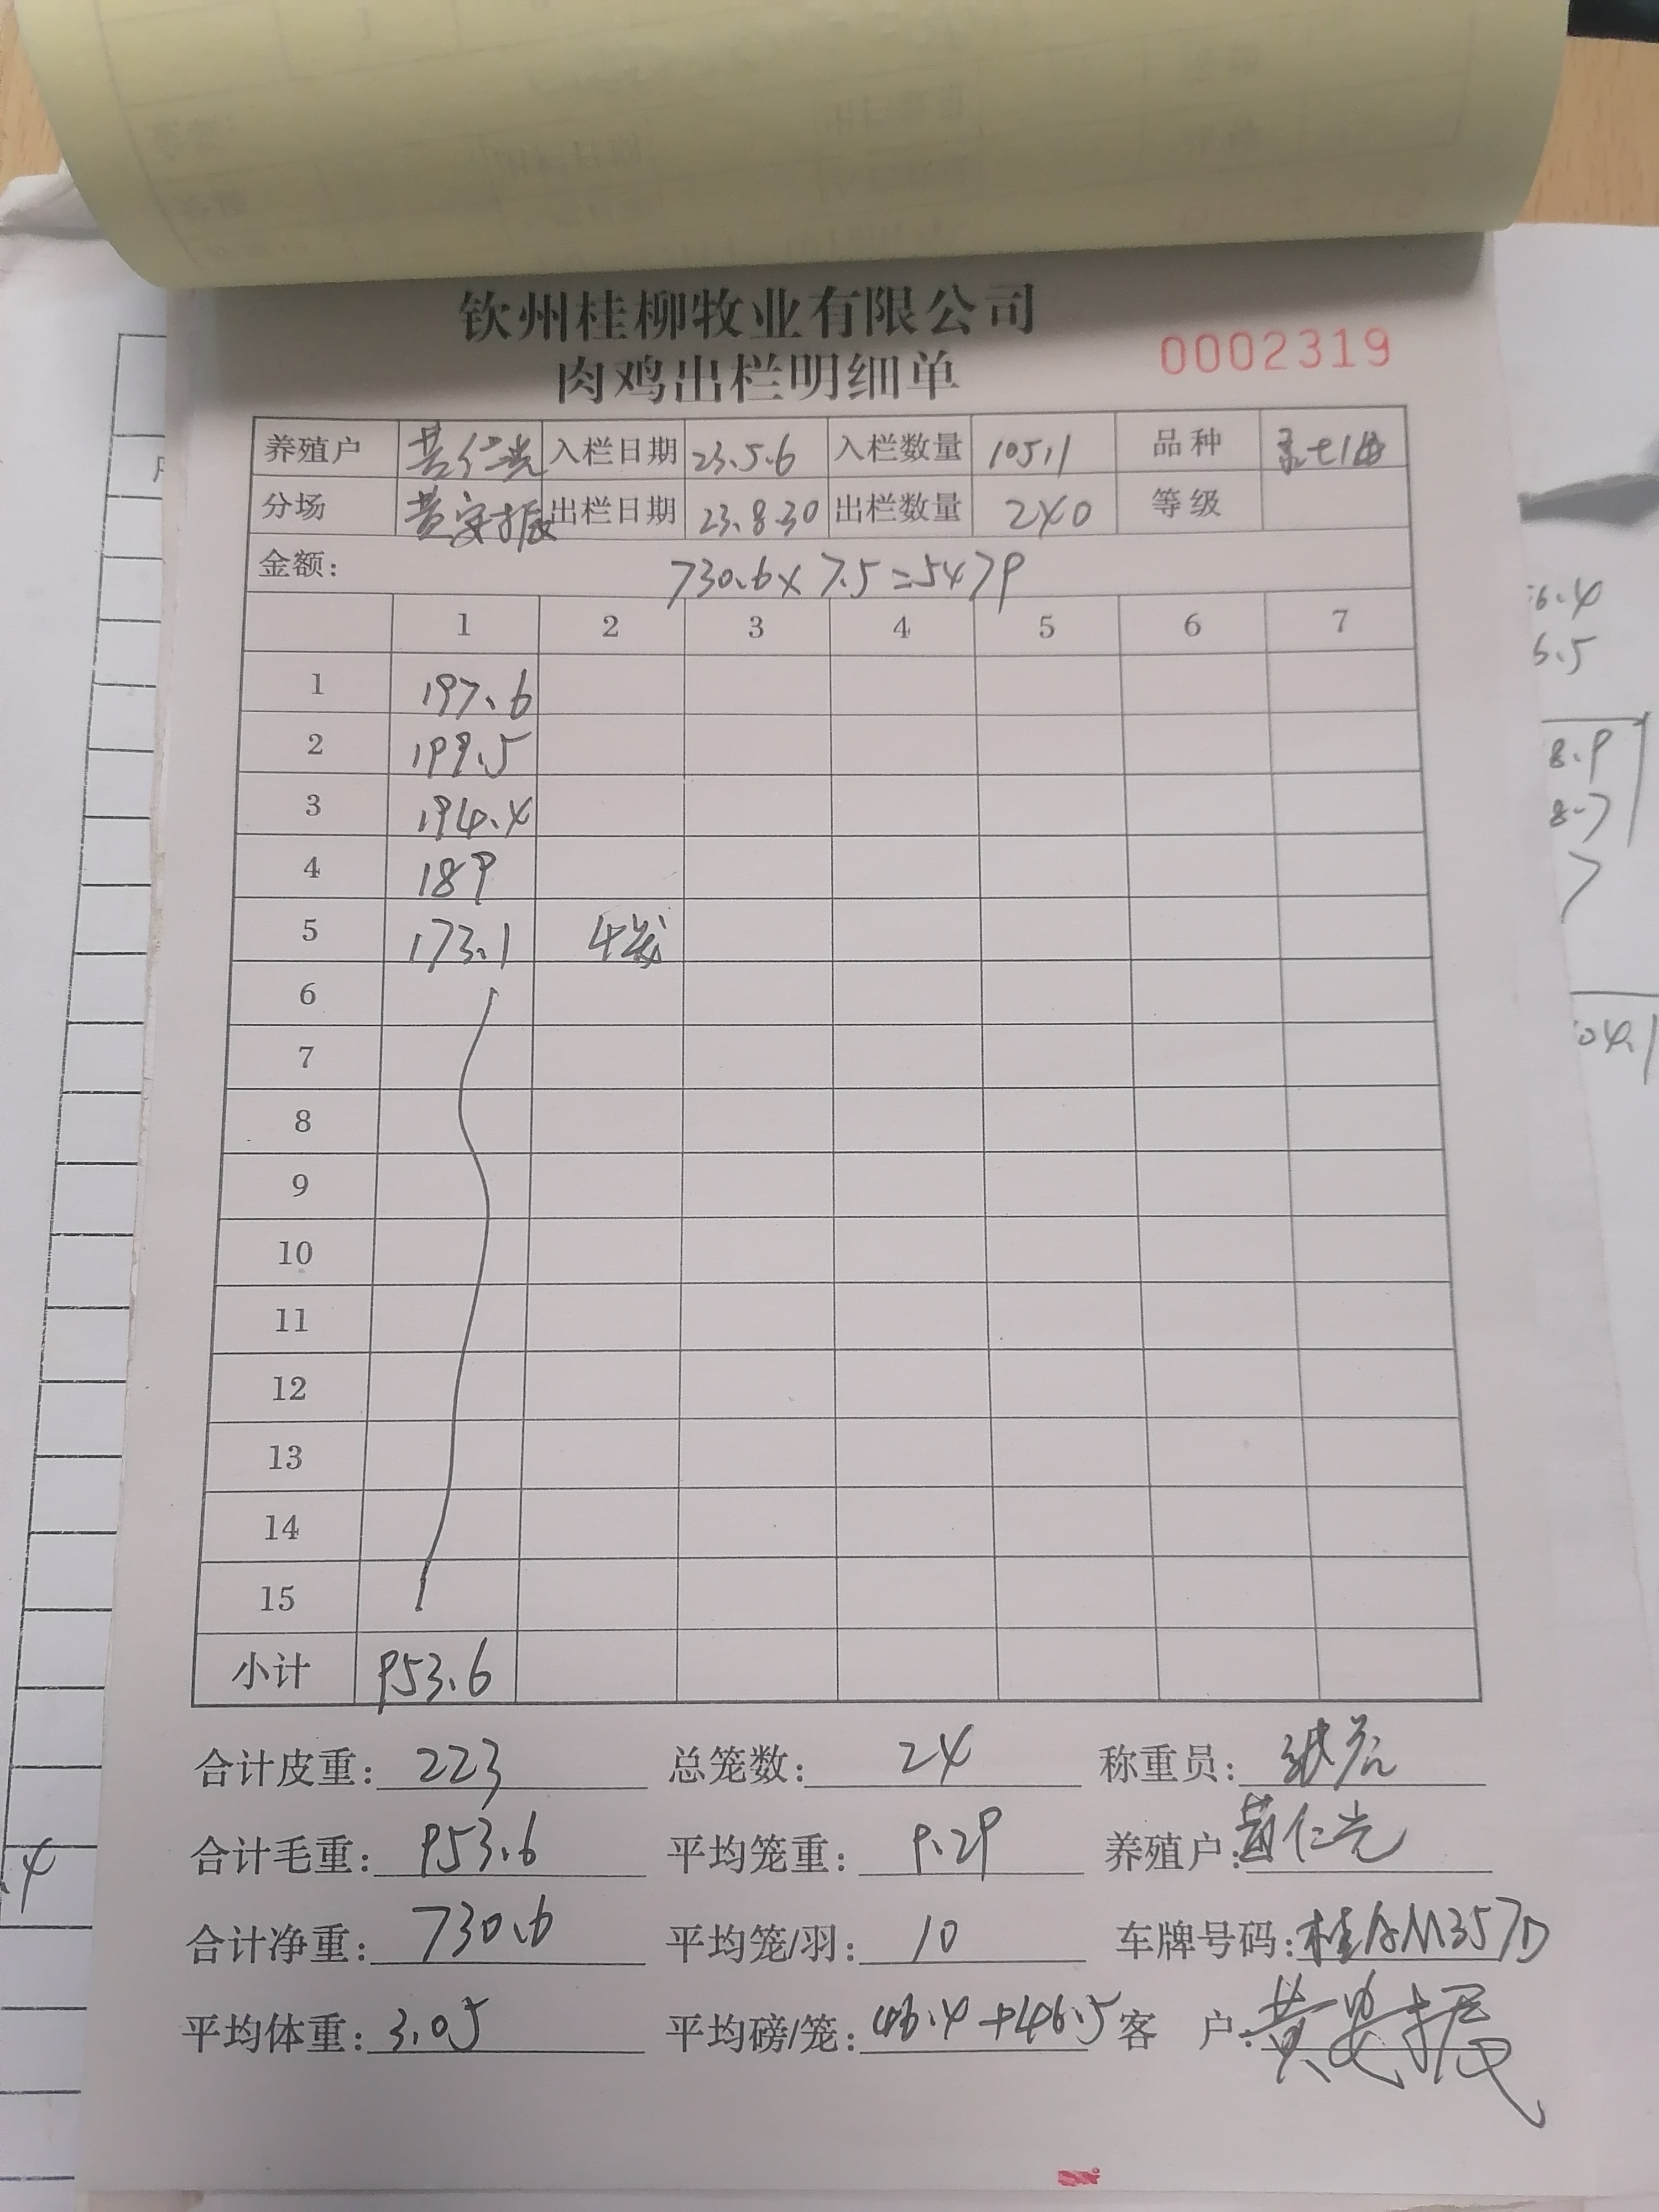 钦州桂柳牧业有限公司
肉鸡出栏明细单
0002319
养殖户 黄仁光 入栏日期 23.5.6 入栏数量 10511 品种
分场 黄安振 出栏日期 23.8.30 出栏数量 240 等级
金额: 730.6×7.5=5479
1 2 3 4 5 6 7
1 197.6
2 199.5
3 194.4
4 189
5 173.1 4笼
6
7
8
9
10
11
12
13
14
15
小计 953.6
合计皮重: 223 总笼数: 24 称重员:
合计毛重: 953.6 平均笼重: 9.29 养殖户: 黄仁光
合计净重: 730.6 平均笼/羽: 10 车牌号码: 桂AM357D
平均体重: 3.05 平均磅/笼: 46.4+46.5 客户: 黄安振
6.5
8.9
8.7
7
04.1
.4